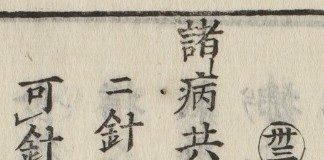 卅三
諸病共
二針
可針